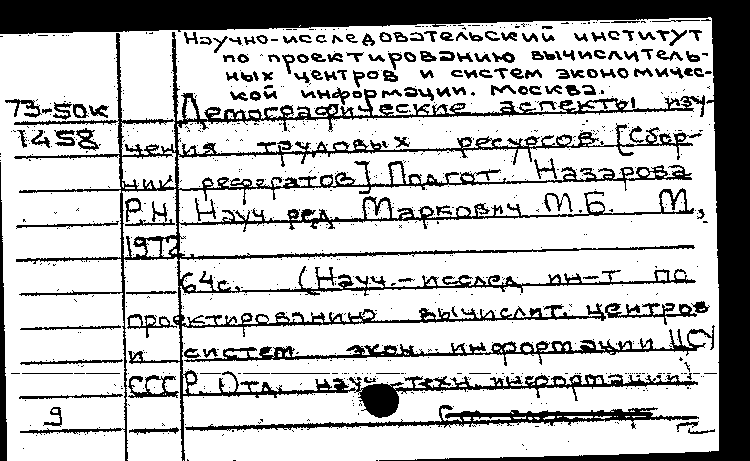 Научно-исследовательский институт
по проектированию вычислитель-
ных центров и систем экономичес-
кой информации. Москва.
73-50к Демографические аспекты изу-
1458 чения трудовых ресурсов. [Сбор-
ник рефератов] Подгот. Назарова
Р.Н. Науч. ред. Маркович М.Б. М.,
1972.
64с. (Науч.-исслед. ин-т по
проектированию вычислит. центров
и систем экон. информации ЦСУ
СССР. Отд. науч.-техн. информации)
9 См. след. кар.